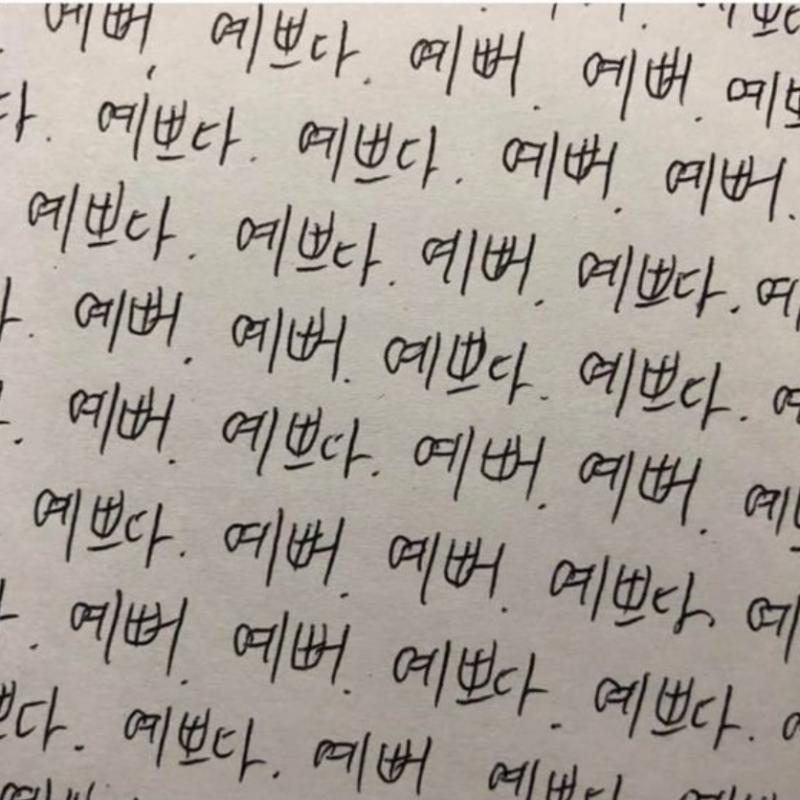 예뻐, 예쁘다. 예뻐. 예뻐.
다. 예쁘다. 예쁘다. 예뻐. 예뻐.
예쁘다. 예쁘다. 예뻐. 예쁘다. 예
예뻐. 예뻐. 예쁘다. 예쁘다.
예뻐. 예쁘다. 예뻐. 예뻐. 예
예쁘다. 예뻐. 예뻐. 예쁘다. 예
예뻐. 예뻐. 예쁘다. 예쁘다.
쁘다. 예쁘다. 예뻐 예쁘다